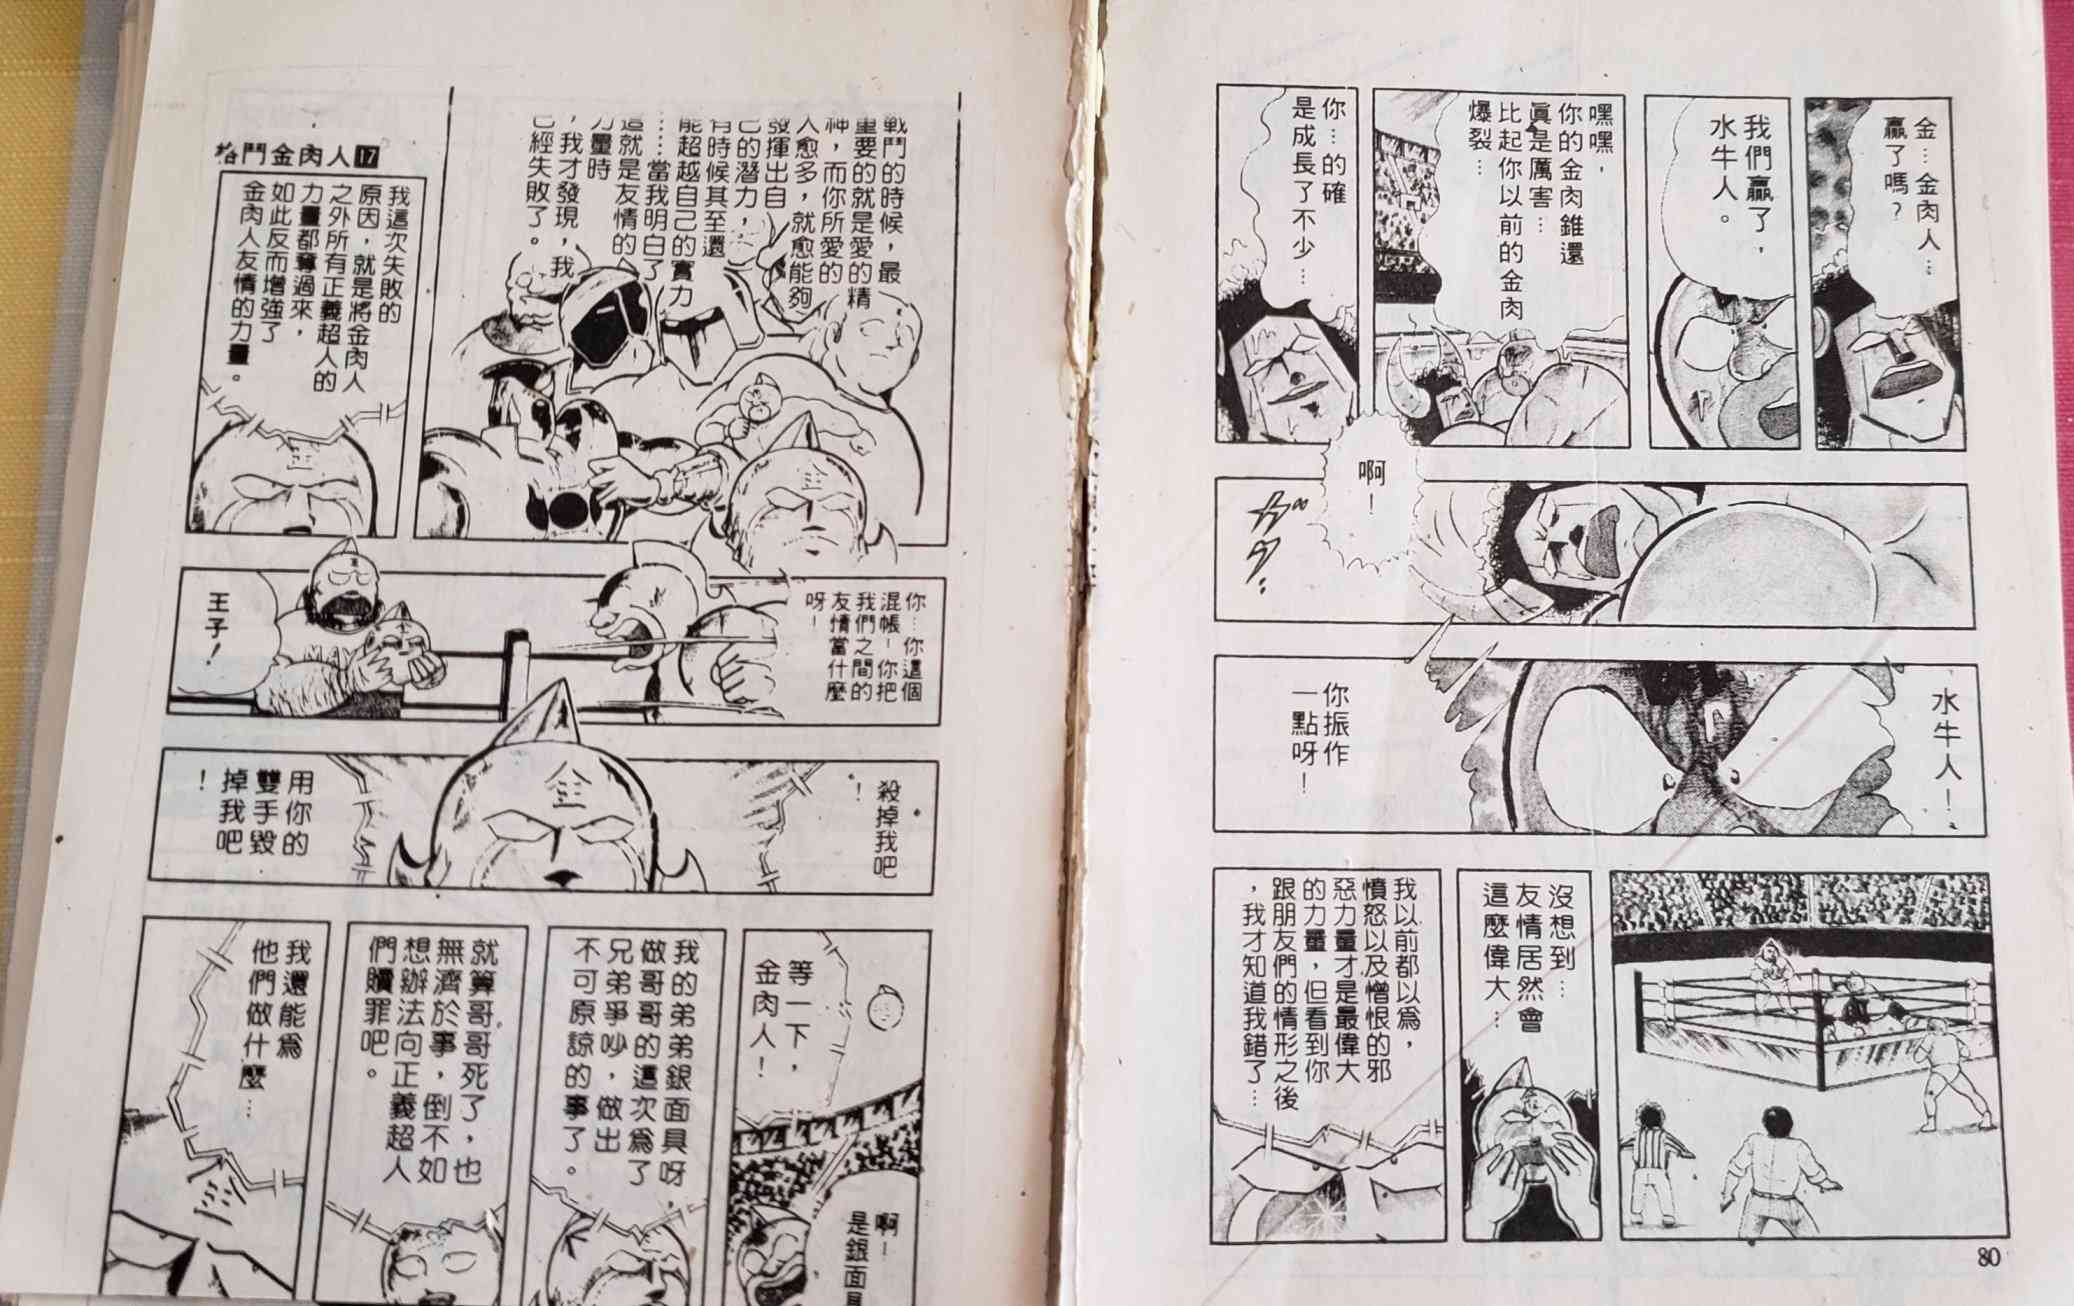 金…金肉人…
贏了嗎?
我們贏了,
水牛人。
嘿嘿,
你的金肉錐還
眞是厲害…
比起你以前的金肉
爆裂…
你…的確
是成長了不少…
啊!
水牛人!
你振作
一點呀!
沒想到…
友情居然會
這麼偉大…
我以前都以爲,
憤怒以及憎恨的邪
惡力量才是最偉大
的力量,但看到你
跟朋友們的情形之後
,我才知道我錯了…
80
戰鬥的時候,最
重要的就是愛的精
神,而你所愛的
人愈多,就愈能夠
發揮出自
己的潛力,
有時候甚至還
能超越自己的實力
……當我明白了
這就是友情的
力量時
,我才發現,我
已經失敗了。
格鬥金肉人17
我這次失敗的
原因,就是將金肉人
之外所有正義超人的
力量都奪過來,
如此反而增強了
金肉人友情的力量。
你…你這個
混帳!你把
我們之間的
友情當什麼
呀!
王子!
殺掉我吧
!
用你的
雙手毀
掉我吧
!
等一下,
金肉人!
啊!
是銀面具
我的弟弟銀面具呀,
做哥哥的這次為了
兄弟爭吵,做出
不可原諒的事了。
就算哥哥死了,也
無濟於事,倒不如
想辦法向正義超人
們贖罪吧。
我還能爲
他們做什麼…